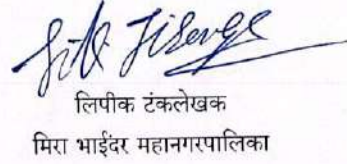 लिपीक टंकलेखक
मिरा भाईंदर महानगरपालिका